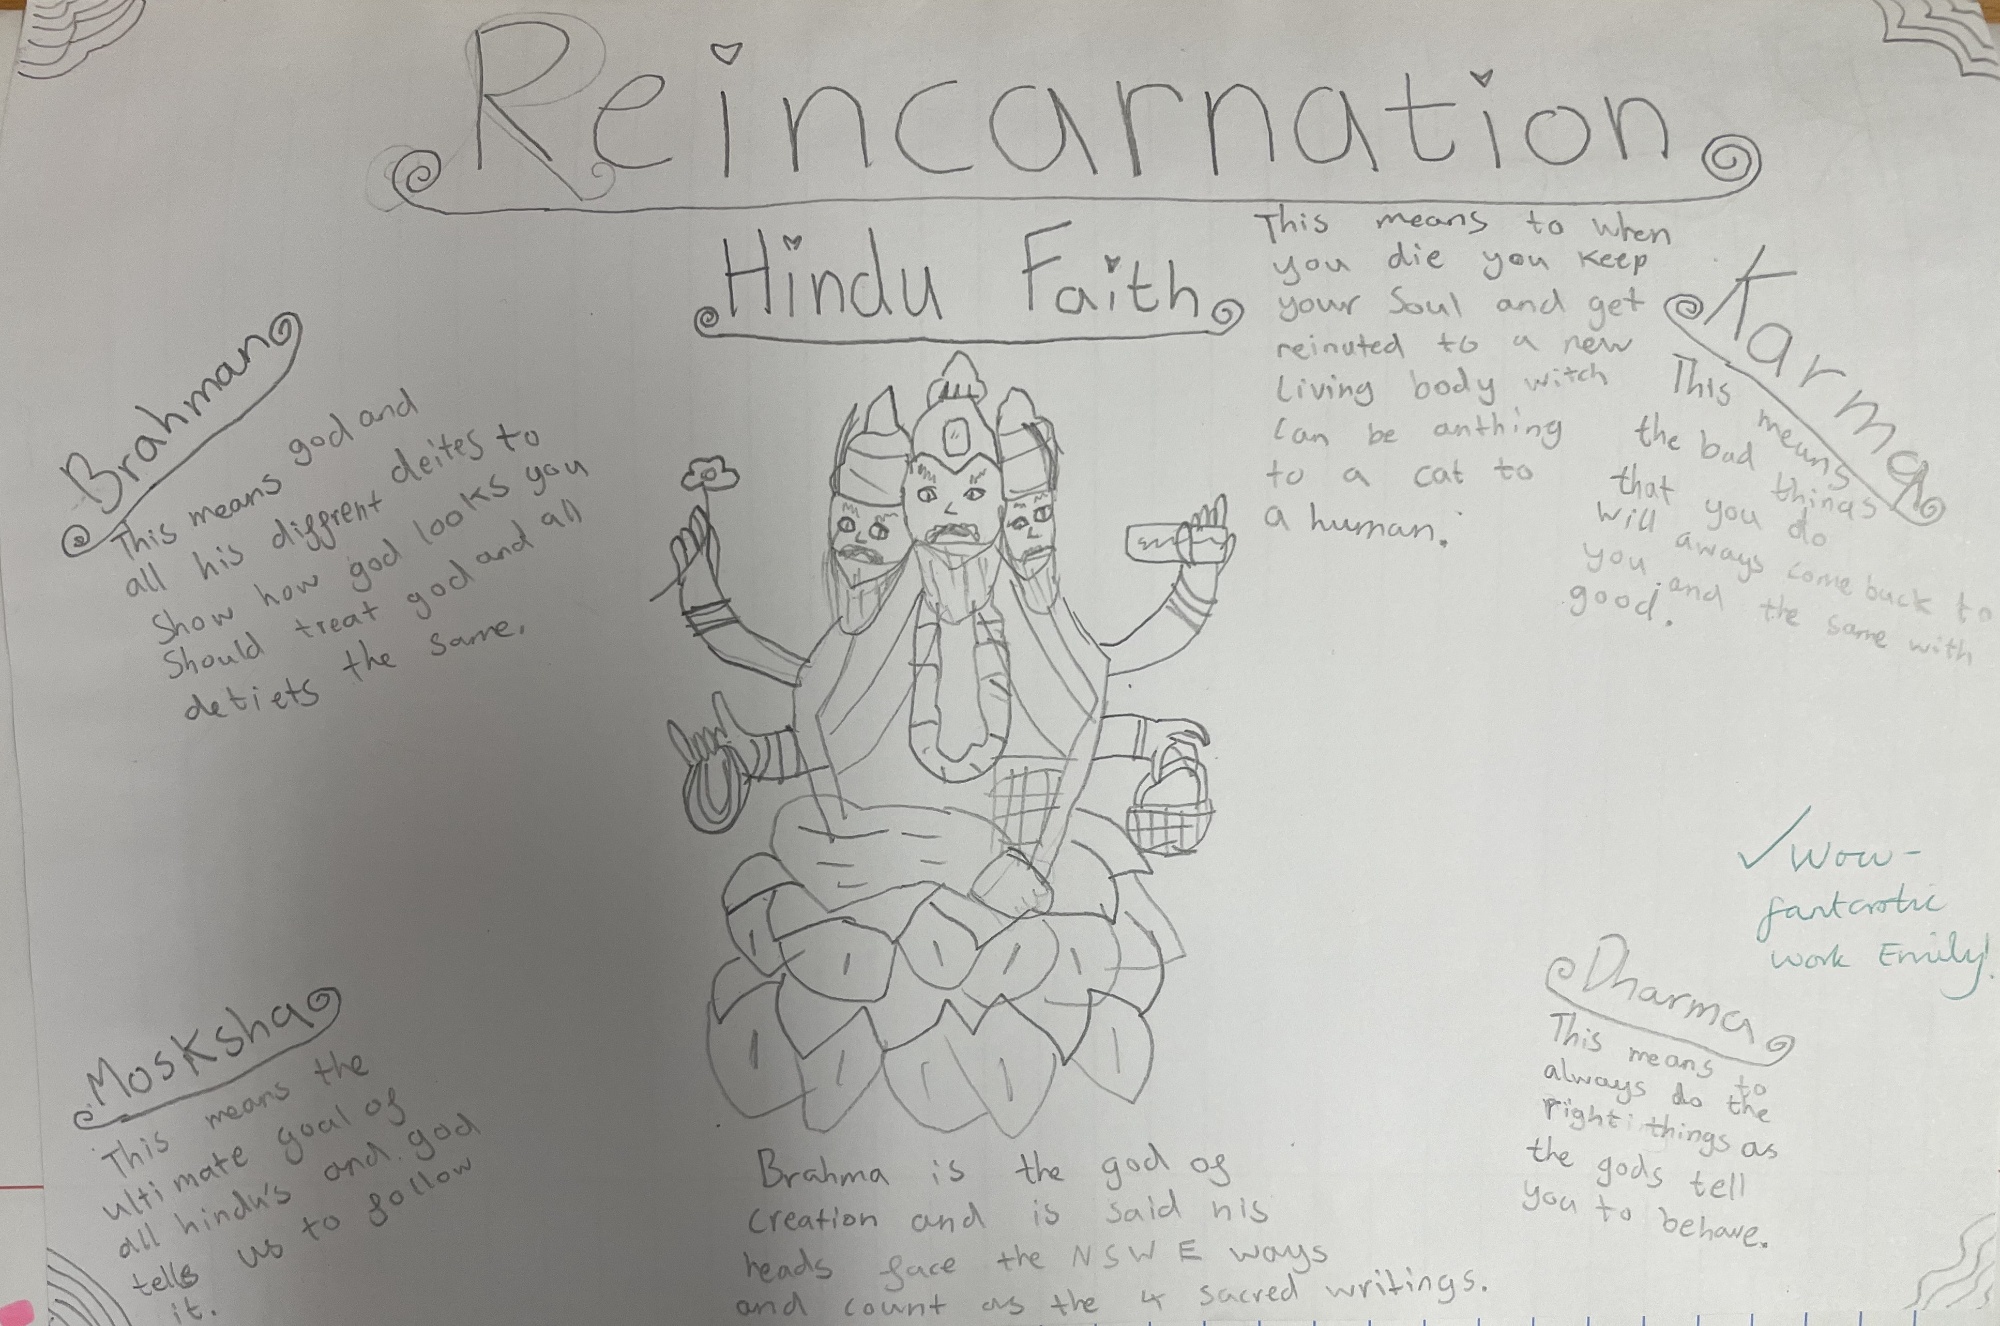 Reincarnation
Hindu Faith
This means to when
you die you keep
your Soul and get
reinuted to a new
Living body witch
can be anthing
to a cat to
a human.
Karma
This means
the bad things
that you do
will aways come back to
you and the same with
good.
Brahman
This means god and
all his diggrent deites to
Show how god looks you
Should treat god and all
detiets the same.
✓ Wow -
fantastic
work Emily!
Dharma
This means to
always do the
right things as
the gods tell
you to behave.
Mosksha
This means the
ultimate goal of
all hindu's and god
tells us to follow
it.
Brahma is the god of
creation and is said his
heads face the N S W E ways
and count as the 4 sacred writings.